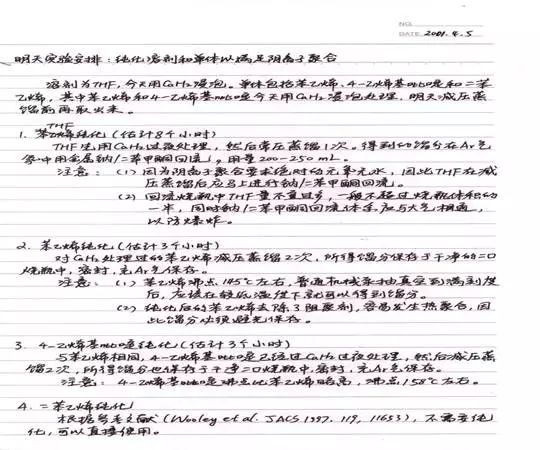 NO.
DATE 2001.4.5
明天实验安排：纯化溶剂和单体以满足阴离子聚合
溶剂为THF，今天用CaH₂浸泡。单体包括苯乙烯、4-乙烯基吡啶和二苯
乙烯，其中苯乙烯和4-乙烯基吡啶今天用CaH₂浸泡处理，明天减压蒸
馏前再取出来。
1. THF纯化（估计8个小时）
THF先用CaH₂过夜处理，然后常压蒸馏1次。得到的馏分在Ar气
氛中用金属钠/二苯甲酮回流，用量200-250 mL。
注意：(1) 因为阴离子聚合要求绝对的无氧无水，因此THF在减
压蒸馏后应马上进行钠/二苯甲酮回流。
(2) 回流烧瓶中THF量不宜过多，一般不超过烧瓶体积的
一半，同时钠/二苯甲酮回流体系应与大气相通，
以防爆炸。
2. 苯乙烯纯化（估计3个小时）
对CaH₂处理过的苯乙烯减压蒸馏2次，所得馏分保存于干净的二口
烧瓶中，密封，充Ar气保存。
注意：(1) 苯乙烯沸点145℃左右，普通机械泵抽真空到满刻度
后，应该在较低温度下就可以得到馏分。
(2) 纯化后的苯乙烯去除了阻聚剂，容易发生热聚合，因
此馏分必须避光保存。
3. 4-乙烯基吡啶纯化（估计3个小时）
与苯乙烯相同，4-乙烯基吡啶已经过CaH₂过夜处理，然后减压蒸
馏2次，所得馏分也保存于干净二口烧瓶中，密封，充Ar气保存。
注意：4-乙烯基吡啶沸点比苯乙烯略高，沸点158℃左右。
4. 二苯乙烯纯化
根据参考文献 (Wooley et al. JACS 1997, 119, 11653)，不需要纯
化，可以直接使用。